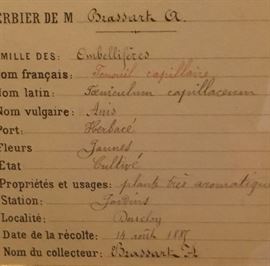 ERBIER DE M Brassart A.
MILLE DES: Embellifères
om français: Fenouil capillaire
om latin: Fœniculum capillaceum
Nom vulgaire: Anis
Port: Herbacé
Fleurs Jaunes
Etat Cultivé
Propriétés et usages: plante très aromatique
Station: Jardins
Localité:
Date de la récolte: 14 août 1887
Nom du collecteur: Brassart A